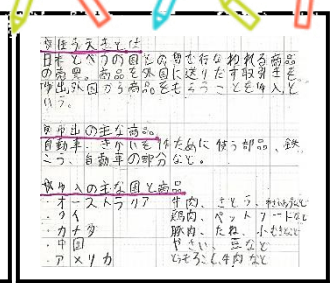 ぼうえきとは
日本とべつの国との間で行なわれる商品
の商売。商品を外国に送りだす取引きを
輸出、外国から商品をもらうことを輸入と
いう。
輸出の主な商品
自動車、きかいを作るために使う部品、鉄
こう、自動車の部分など。
輸入の主な国と商品
・オーストラリア 牛肉、さとう、
・タイ 鶏肉、ペットフードなど
・カナダ 豚肉、たね、小むぎなど
・中国 やさい、豆など
・アメリカ とうもろこし、牛肉など